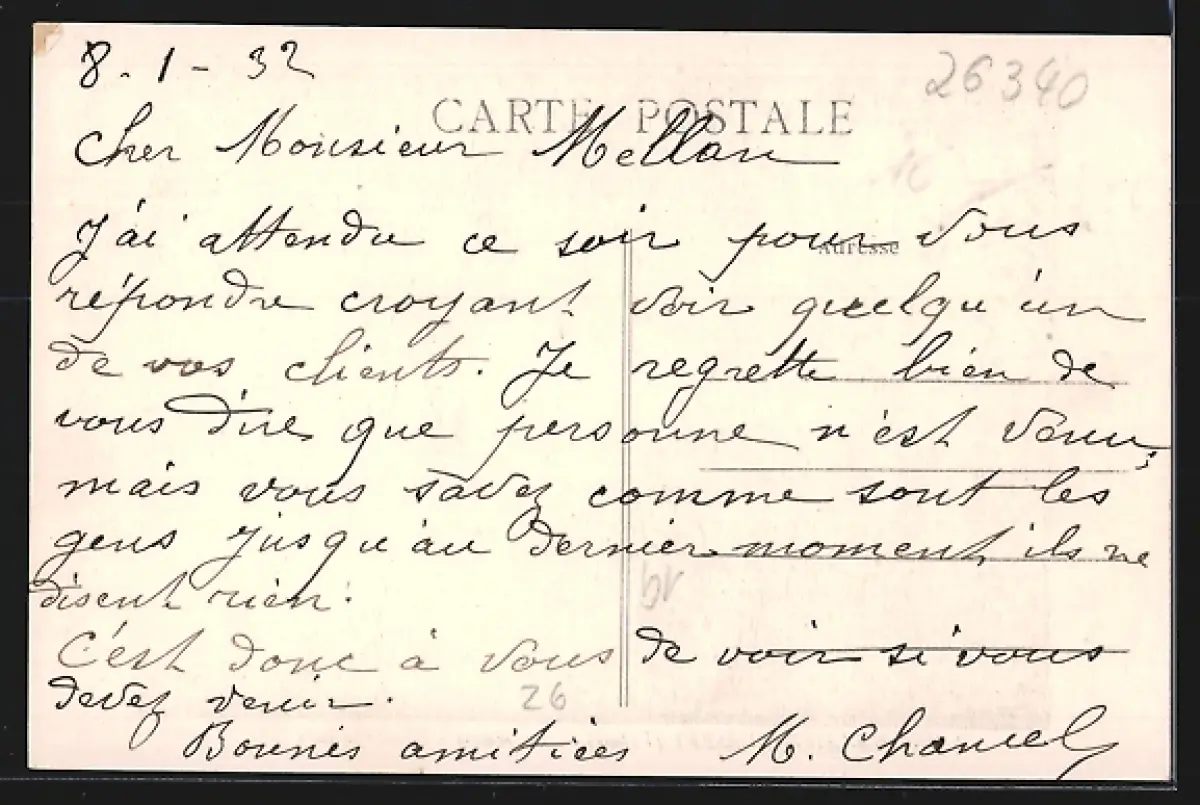 8-1-32
26340
CARTE POSTALE
Cher Monsieur Mellan
Adresse
J'ai attendu ce soir pour vous
répondre croyant voir quelqu'un
de vos clients. Je regrette bien de
vous dire que personne n'est venu,
mais vous savez comme sont les
gens jusqu'au dernier moment, ils ne
disent rien.
C'est donc à vous de voir si vous
devez venir.
26
Bonnes amitiées M. Chancel